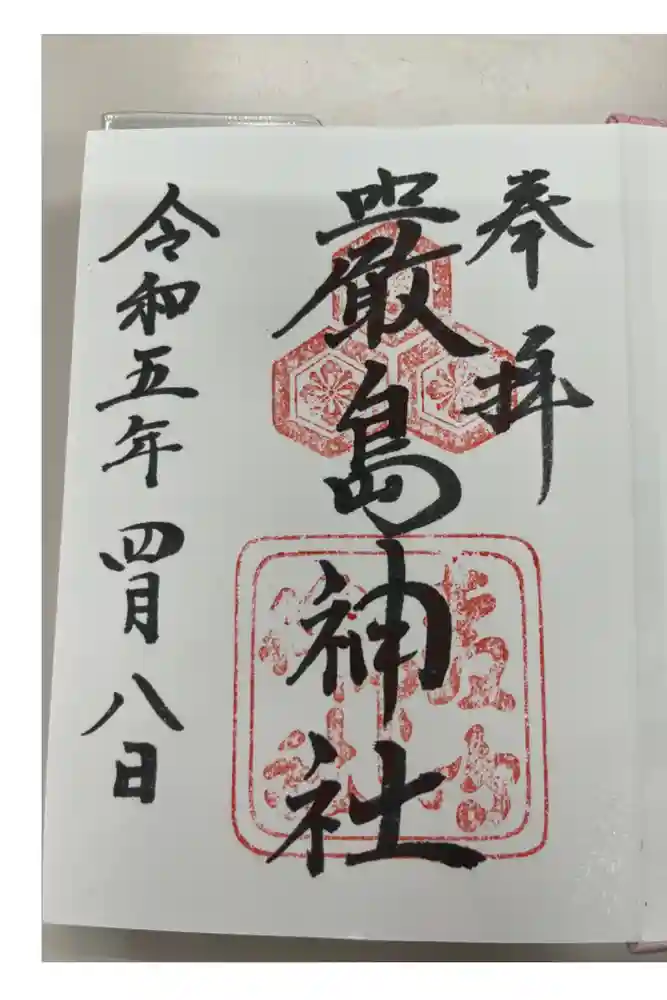 奉拝
嚴島神社
令和五年四月八日